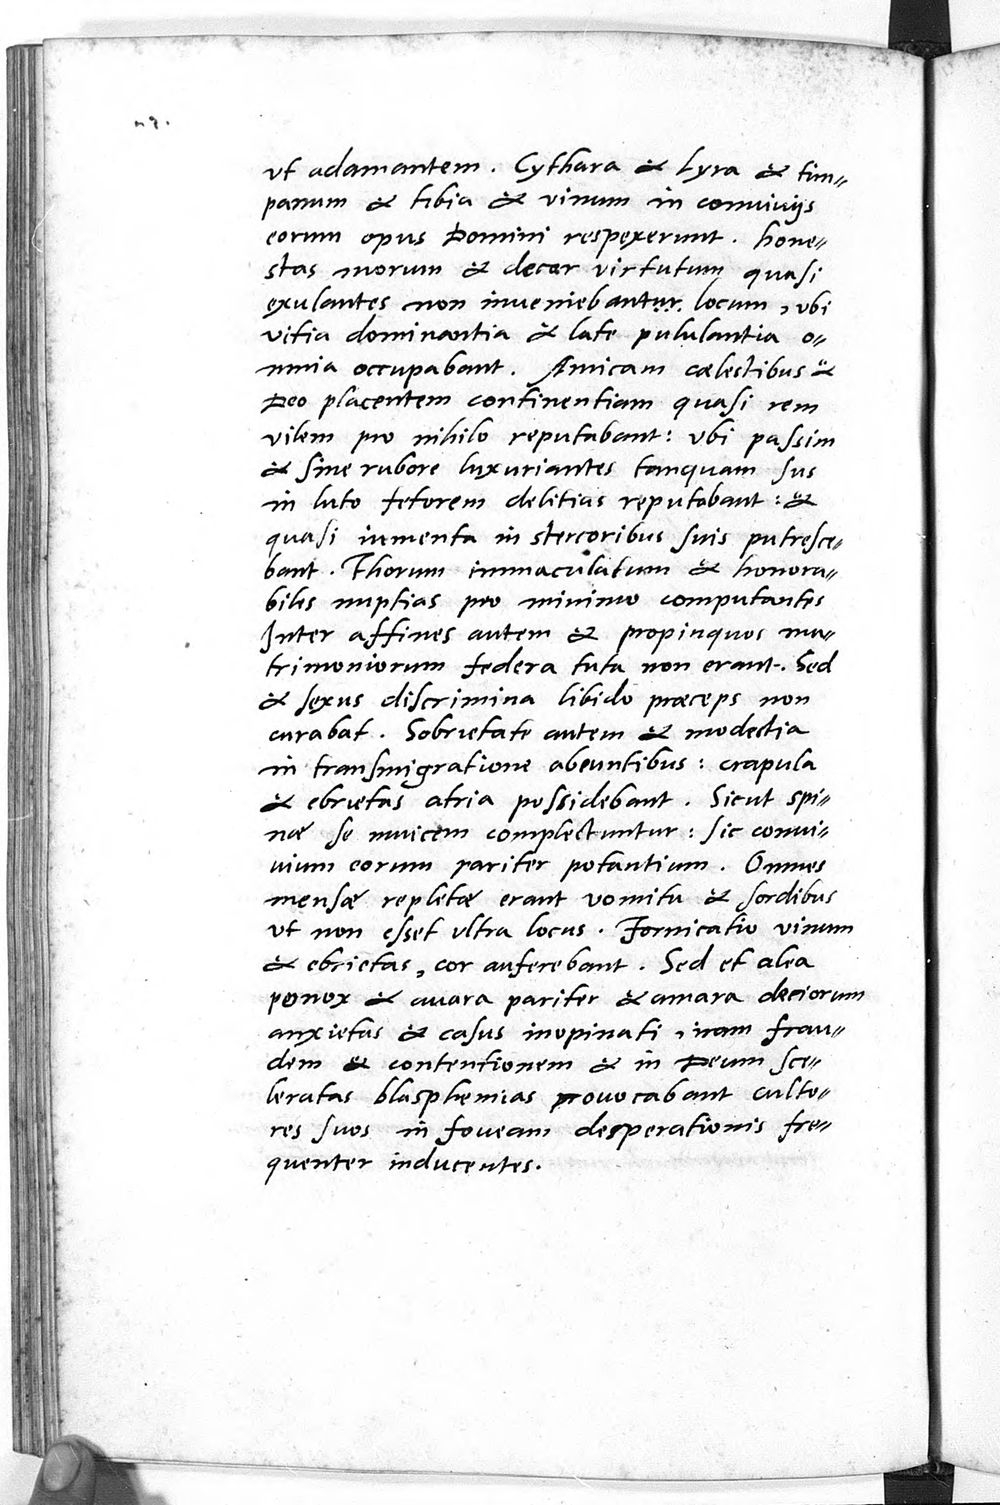 ut adamantem. Cythara & Lyra & tim=
panum & tibia & vinum in conviviis
eorum opus Domini respexerunt. hone=
stas morum & decor virtutum quasi
exulantes non inveniebantur locum, ubi
vitia dominantia & late pululantia o=
mnia occupabant. Amicam cælestibus &
Deo placentem continentiam quasi rem
vilem pro nihilo reputabant: ubi passim
& sine rubore luxuriantes tanquam sus
in luto fetorem delitias reputabant: &
quasi iumenta in stercoribus suis putresce=
bant. Thorum immaculatum & honora=
biles nuptias pro minimo computantes
Inter affines autem & propinquos ma=
trimoniorum federa tuta non erant. Sed
& sexus discrimina libido præceps non
curabat. Sobrietate autem & modestia
in transmigratione abeuntibus: crapula
& ebrietas atria possidebant. Sicut spi=
næ se invicem complectuntur: sic convi=
vium eorum pariter potantium. Omnes
mensæ repletæ erant vomitu & sordibus
ut non esset ultra locus. Fornicatio vinum
& ebrietas, cor auferebant. Sed et alea
pernox & avara pariter & amara deciorum
anxietas & casus inopinati, inam frau=
dem & contentionem & in Deum sce=
leratas blasphemias provocabant culto=
res suos in foveam desperationis fre=
quenter inducentes.